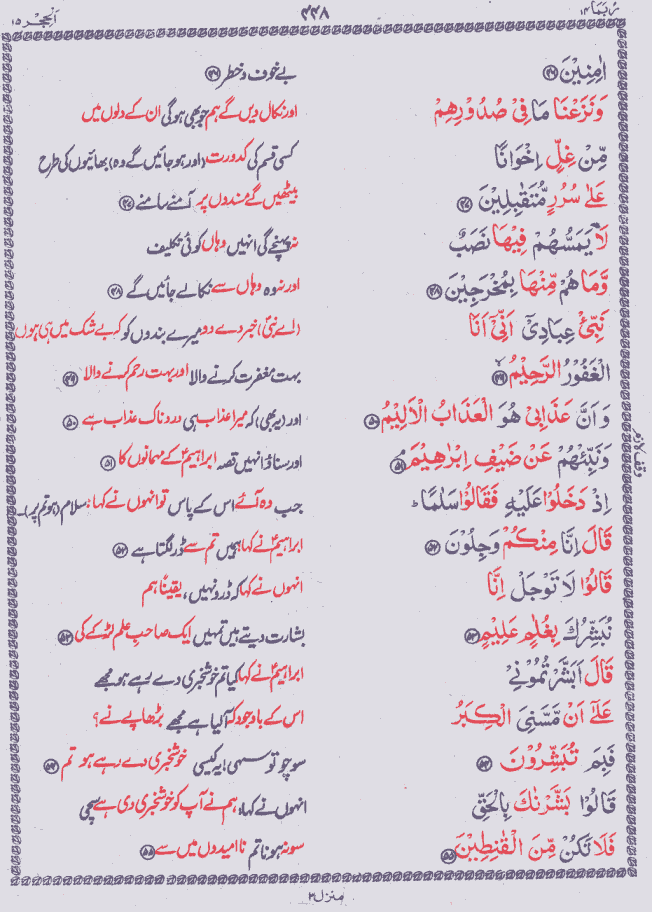 رُبَمَا ١٤
٣٣٨
اَلْحِجْر ١٥
اٰمِنِيْنَ ﴿٤٦﴾
بے خوف و خطر ﴿٤٦﴾
وَنَزَعْنَا مَا فِيْ صُدُوْرِهِمْ
اور نکال دیں گے ہم جو بھی ہوگی ان کے دلوں میں
مِّنْ غِلٍّ اِخْوَانًا
کسی قسم کی کدورت (اور ہو جائیں گے وہ) بھائیوں کی طرح
عَلٰى سُرُرٍ مُّتَقٰبِلِيْنَ ﴿٤٧﴾
بیٹھیں گے مسندوں پر آمنے سامنے ﴿٤٧﴾
لَا يَمَسُّهُمْ فِيْهَا نَصَبٌ
نہ پہنچے گی انہیں وہاں کوئی تکلیف
وَّمَا هُمْ مِّنْهَا بِمُخْرَجِيْنَ ﴿٤٨﴾
اور نہ وہ وہاں سے نکالے جائیں گے ﴿٤٨﴾
نَبِّئْ عِبَادِيْٓ اَنِّيْٓ اَنَا
(اے نبی) خبر دے دو میرے بندوں کو کہ بے شک میں ہی ہوں
الْغَفُوْرُ الرَّحِيْمُ ﴿٤٩﴾
بہت مغفرت کرنے والا اور بہت رحم کرنے والا ﴿٤٩﴾
وَاَنَّ عَذَابِيْ هُوَ الْعَذَابُ الْاَلِيْمُ ﴿٥٠﴾
اور (یہ بھی) کہ میرا عذاب ہی دردناک عذاب ہے ﴿٥٠﴾
وَنَبِّئْهُمْ عَنْ ضَيْفِ اِبْرٰهِيْمَ ﴿٥١﴾
اور سناؤ انہیں قصہ ابراہیمؑ کے مہمانوں کا ﴿٥١﴾
اِذْ دَخَلُوْا عَلَيْهِ فَقَالُوْا سَلٰمًا ؕ
جب وہ آئے اس کے پاس تو انہوں نے کہا: سلام (ہو تم پر)۔
قَالَ اِنَّا مِنْكُمْ وَجِلُوْنَ ﴿٥٢﴾
ابراہیمؑ نے کہا: ہمیں تم سے ڈر لگتا ہے ﴿٥٢﴾
قَالُوْا لَا تَوْجَلْ اِنَّا
انہوں نے کہا کہ ڈرو نہیں، یقیناً ہم
نُبَشِّرُكَ بِغُلٰمٍ عَلِيْمٍ ﴿٥٣﴾
بشارت دیتے ہیں تمہیں ایک صاحبِ علم لڑکے کی ﴿٥٣﴾
قَالَ اَبَشَّرْتُمُوْنِيْ
ابراہیمؑ نے کہا کیا تم خوشخبری دے رہے ہو مجھے
عَلٰٓى اَنْ مَّسَّنِيَ الْكِبَرُ
اس کے باوجود کہ آ لیا ہے مجھے بڑھاپے نے؟
فَبِمَ تُبَشِّرُوْنَ ﴿٥٤﴾
سوچو تو سہی! یہ کیسی خوشخبری دے رہے ہو تم ﴿٥٤﴾
قَالُوْا بَشَّرْنٰكَ بِالْحَقِّ
انہوں نے کہا، ہم نے آپ کو خوشخبری دی ہے سچی
فَلَا تَكُنْ مِّنَ الْقٰنِطِيْنَ ﴿٥٥﴾
سو نہ ہونا تم ناامیدوں میں سے ﴿٥٥﴾
وقف لازم
منزل ٣